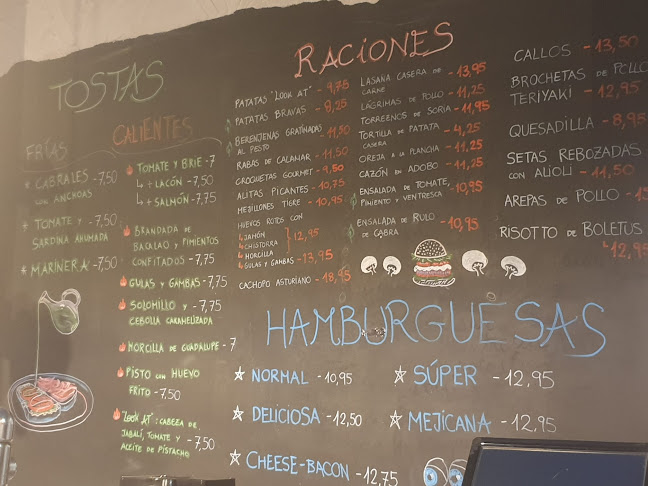 TOSTAS
FRÍAS
* CABRALES - 7,50
CON ANCHOAS
* TOMATE Y - 7,50
SARDINA AHUMADA
* MARINERA - 7,50
CALIENTES
TOMATE Y BRIE - 7
↳ + LACÓN - 7,50
↳ + SALMÓN - 7,75
BRANDADA DE
BACALAO Y PIMIENTOS
CONFITADOS - 7,75
GULAS Y GAMBAS - 7,75
SOLOMILLO Y - 7,75
CEBOLLA CARAMELIZADA
MORCILLA DE GUADALUPE - 7
PISTO CON HUEVO
FRITO - 7,50
"LOOK AT": CABEZA DE
JABALÍ, TOMATE Y - 7,50
ACEITE DE PISTACHO
RACIONES
PATATAS "LOOK AT" - 9,75
PATATAS BRAVAS - 8,25
BERENJENAS GRATINADAS - 11,50
AL PESTO
RABAS DE CALAMAR - 11,50
CROQUETAS GOURMET - 9,50
ALITAS PICANTES - 10,75
MEJILLONES TIGRE - 10,95
HUEVOS ROTOS CON
↳ JAMÓN
↳ CHISTORRA } 12,95
↳ MORCILLA
↳ GULAS Y GAMBAS - 13,95
CACHOPO ASTURIANO - 18,95
LASAÑA CASERA DE - 13,95
CARNE
LÁGRIMAS DE POLLO - 11,25
TORREZNOS DE SORIA - 11,95
TORTILLA DE PATATA - 4,25
CASERA
OREJA A LA PLANCHA - 11,25
CAZÓN EN ADOBO - 11,25
ENSALADA DE TOMATE, - 10,95
PIMIENTO Y VENTRESCA
ENSALADA DE RULO - 10,95
DE CABRA
CALLOS - 13,50
BROCHETAS DE POLLO
TERIYAKI - 12,95
QUESADILLA - 8,95
SETAS REBOZADAS
CON ALIOLI - 11,50
AREPAS DE POLLO -
RISOTTO DE BOLETUS
↳ 12,95
HAMBURGUESAS
☆ NORMAL - 10,95
☆ DELICIOSA - 12,50
☆ CHEESE-BACON - 12,75
☆ SÚPER - 12,95
☆ MEJICANA - 12,95